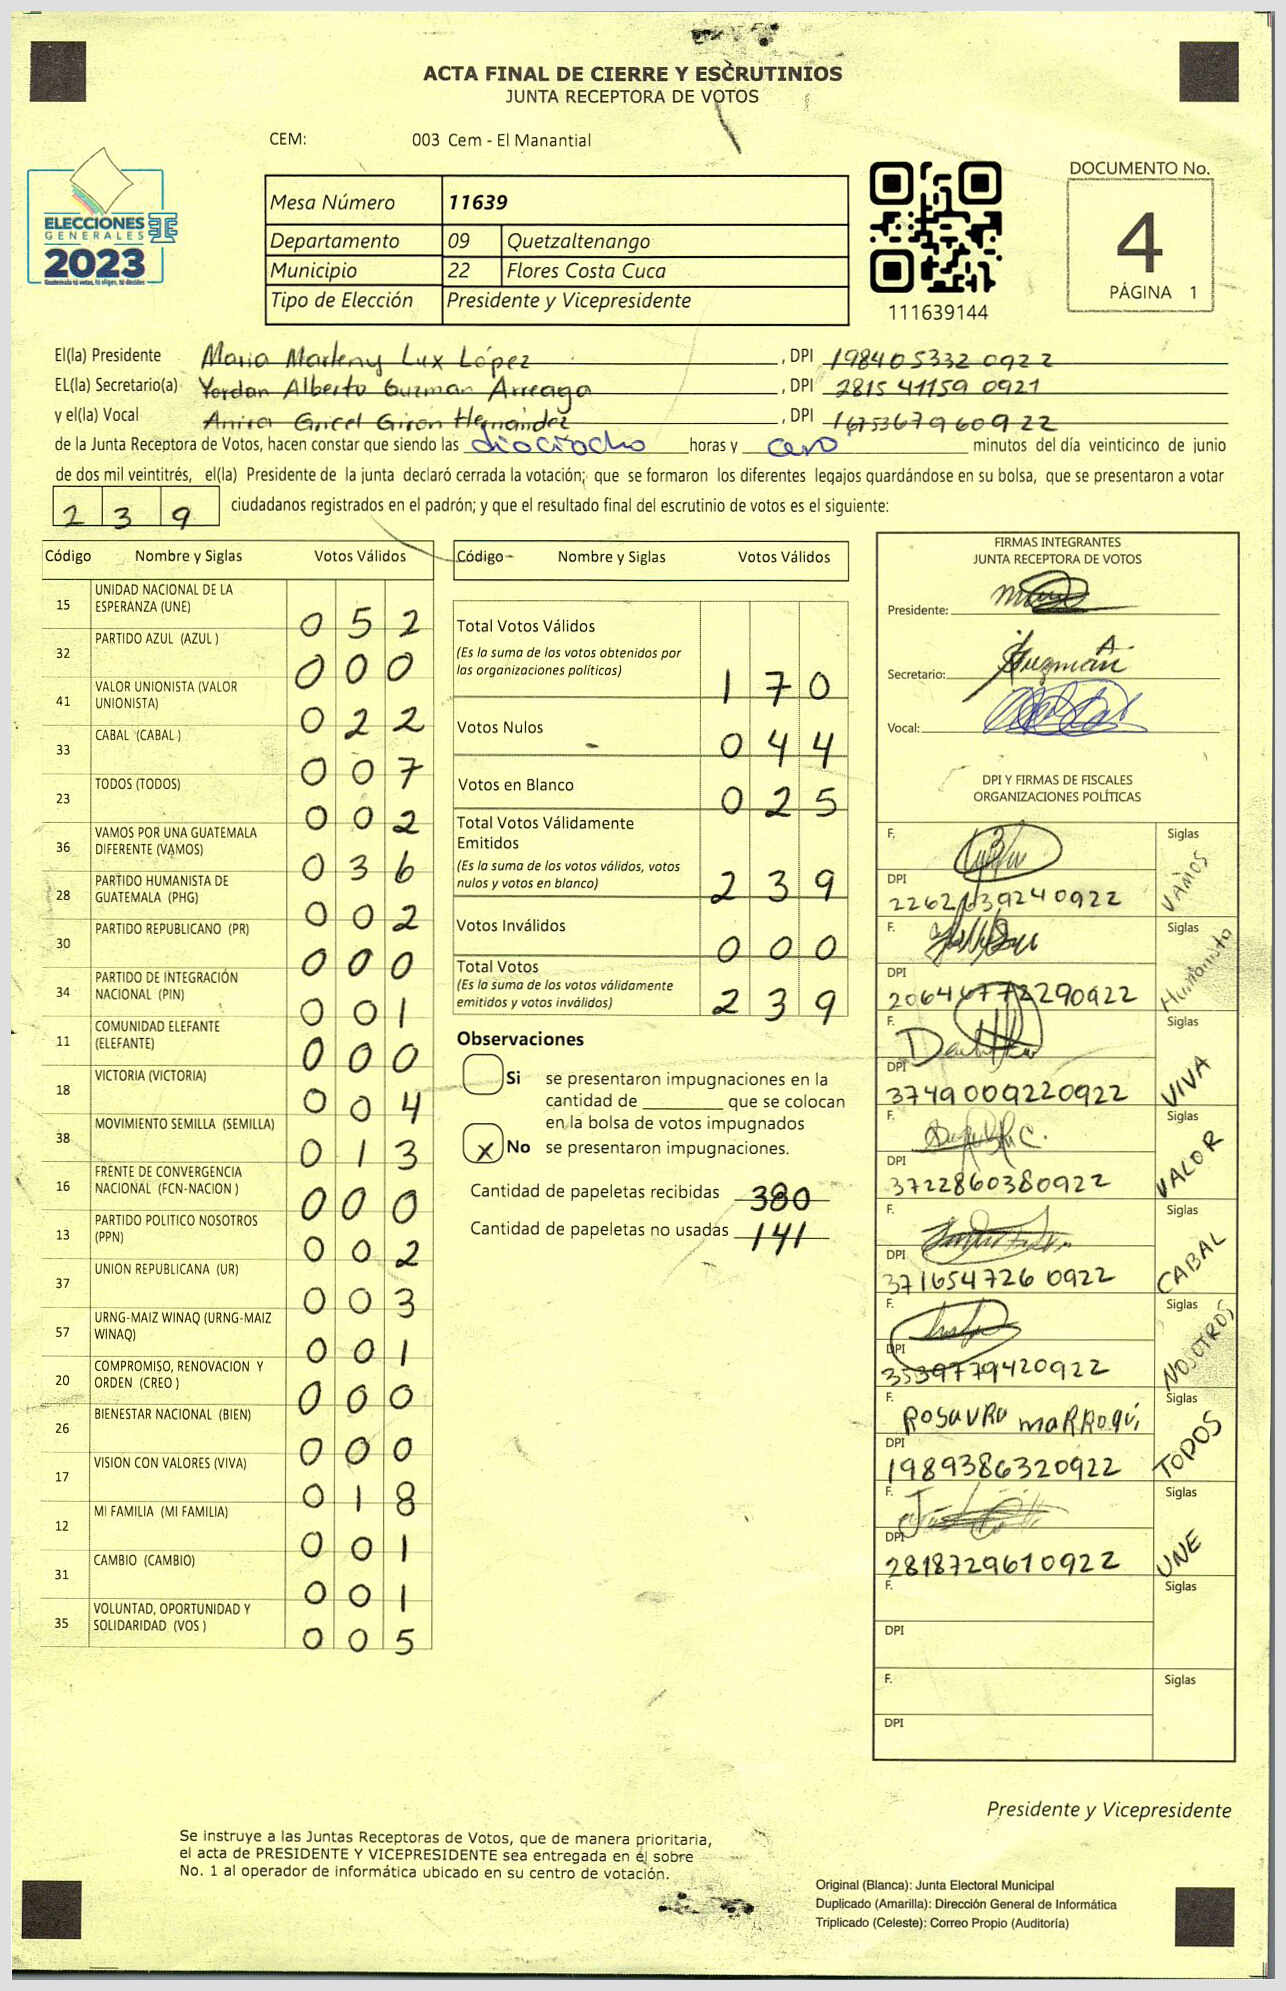 ACTA FINAL DE CIERRE Y ESCRUTINIOS
JUNTA RECEPTORA DE VOTOS
CEM: 003 Cem - El Manantial
ELECCIONES
GENERALES
2023
Guatemala tú votas, tú eliges, tú decides
Mesa Número 11639
Departamento 09 Quetzaltenango
Municipio 22 Flores Costa Cuca
Tipo de Elección Presidente y Vicepresidente
111639144
DOCUMENTO No.
4
PÁGINA 1
El(la) Presidente Maria Marleny Lux López , DPI 198405332 0922
EL(la) Secretario(a) Yordan Alberto Guzman Arreaga , DPI 2815 41159 0921
y el(la) Vocal Gricel Giron Hernández , DPI 1675367960922
de la Junta Receptora de Votos, hacen constar que siendo las dieciocho horas y cero minutos del día veinticinco de junio
de dos mil veintitrés, el(la) Presidente de la junta declaró cerrada la votación; que se formaron los diferentes legajos guardándose en su bolsa, que se presentaron a votar
239 ciudadanos registrados en el padrón; y que el resultado final del escrutinio de votos es el siguiente:
Código Nombre y Siglas Votos Válidos
15 UNIDAD NACIONAL DE LA ESPERANZA (UNE) 052
32 PARTIDO AZUL (AZUL ) 000
41 VALOR UNIONISTA (VALOR UNIONISTA) 022
33 CABAL (CABAL ) 007
23 TODOS (TODOS) 002
36 VAMOS POR UNA GUATEMALA DIFERENTE (VAMOS) 036
28 PARTIDO HUMANISTA DE GUATEMALA (PHG) 002
30 PARTIDO REPUBLICANO (PR) 000
34 PARTIDO DE INTEGRACIÓN NACIONAL (PIN) 001
11 COMUNIDAD ELEFANTE (ELEFANTE) 000
18 VICTORIA (VICTORIA) 004
38 MOVIMIENTO SEMILLA (SEMILLA) 013
16 FRENTE DE CONVERGENCIA NACIONAL (FCN-NACION ) 000
13 PARTIDO POLITICO NOSOTROS (PPN) 002
37 UNION REPUBLICANA (UR) 003
57 URNG-MAIZ WINAQ (URNG-MAIZ WINAQ) 001
20 COMPROMISO, RENOVACION Y ORDEN (CREO ) 000
26 BIENESTAR NACIONAL (BIEN) 000
17 VISION CON VALORES (VIVA) 018
12 MI FAMILIA (MI FAMILIA) 001
31 CAMBIO (CAMBIO) 001
35 VOLUNTAD, OPORTUNIDAD Y SOLIDARIDAD (VOS ) 005
Código Nombre y Siglas Votos Válidos
Total Votos Válidos
(Es la suma de los votos obtenidos por las organizaciones políticas) 170
Votos Nulos 044
Votos en Blanco 025
Total Votos Válidamente Emitidos
(Es la suma de los votos válidos, votos nulos y votos en blanco) 239
Votos Inválidos 000
Total Votos
(Es la suma de los votos válidamente emitidos y votos inválidos) 239
Observaciones
Si se presentaron impugnaciones en la
cantidad de ________ que se colocan
en la bolsa de votos impugnados
X No se presentaron impugnaciones.
Cantidad de papeletas recibidas 380
Cantidad de papeletas no usadas 141
FIRMAS INTEGRANTES
JUNTA RECEPTORA DE VOTOS
Presidente:
Secretario: Guzmán
Vocal:
DPI Y FIRMAS DE FISCALES
ORGANIZACIONES POLÍTICAS
F. Siglas VAMOS
DPI
F. Siglas Humanista
DPI
F. Siglas VIVA
DPI 3749009220922
F. Siglas VALOR
DPI 3722860380922
F. Siglas CABAL
DPI 371654726 0922
F. Siglas NOSOTROS
DPI 3539779420922
F. ROSAURA MARROQUÍ Siglas TODOS
DPI 1989386320922
F. Siglas UNE
DPI 2818729610922
F. Siglas
DPI
F. Siglas
DPI
Presidente y Vicepresidente
Se instruye a las Juntas Receptoras de Votos, que de manera prioritaria,
el acta de PRESIDENTE Y VICEPRESIDENTE sea entregada en el sobre
No. 1 al operador de informática ubicado en su centro de votación.
Original (Blanca): Junta Electoral Municipal
Duplicado (Amarilla): Dirección General de Informática
Triplicado (Celeste): Correo Propio (Auditoría)